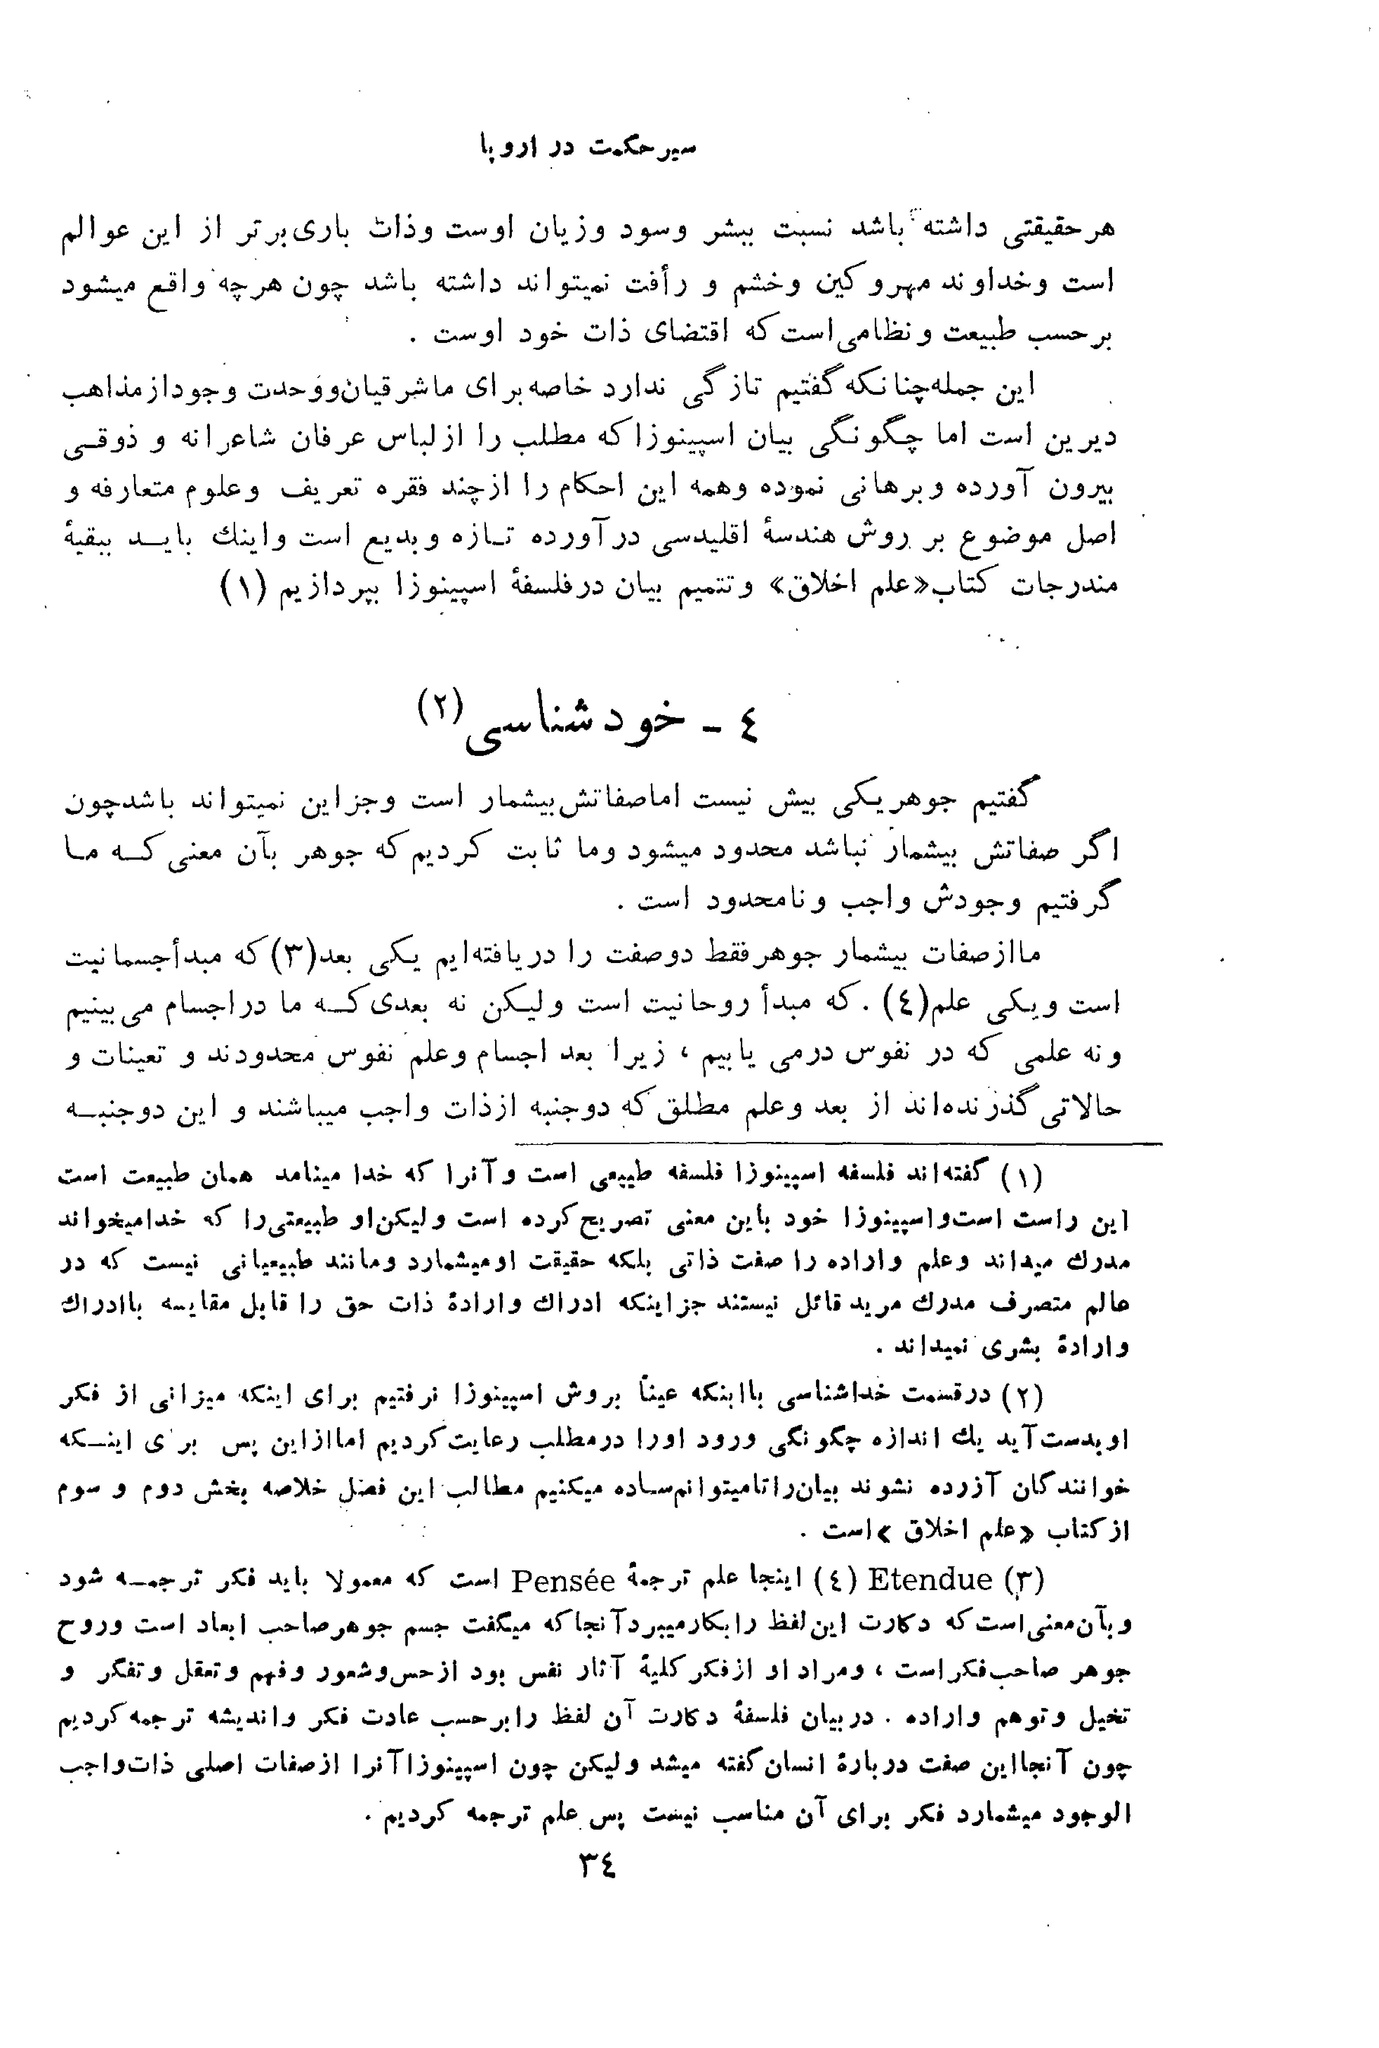 سیر حکمت در اروپا
هر حقیقتی داشته باشد نسبت ببشر وسود وزیان اوست وذات باری برتر از این عوالم
است وخداوند مهر و کین وخشم و رأفت نمیتواند داشته باشد چون هرچه واقع میشود
برحسب طبیعت ونظامی است که اقتضای ذات خود اوست .
این جمله چنانکه گفتیم تازگی ندارد خاصه برای ما شرقیان ووحدت وجود از مذاهب
دیرین است اما چگونگی بیان اسپینوزا که مطلب را از لباس عرفان شاعرانه و ذوقی
بیرون آورده وبرهانی نموده وهمه این احکام را از چند فقره تعریف وعلوم متعارفه و
اصل موضوع بر روش هندسهٔ اقلیدسی درآورده تازه وبدیع است واینك باید ببقیهٔ
مندرجات کتاب «علم اخلاق» وتتمیم بیان در فلسفهٔ اسپینوزا بپردازیم (۱)
٤ - خود شناسی (۲)
گفتیم جوهر یکی بیش نیست اما صفاتش بیشمار است وجز این نمیتواند باشد چون
اگر صفاتش بیشمار نباشد محدود میشود وما ثابت کردیم که جوهر بآن معنی که ما
گرفتیم وجودش واجب ونامحدود است .
ما از صفات بیشمار جوهر فقط دو صفت را دریافته ایم یکی بعد (۳) که مبدأ جسمانیت
است ویکی علم (٤) . که مبدأ روحانیت است ولیکن نه بعدی که ما در اجسام می بینیم
ونه علمی که در نفوس درمی یابیم ، زیرا بعد اجسام وعلم نفوس محدودند و تعینات و
حالاتی گذرنده اند از بعد وعلم مطلق که دو جنبه از ذات واجب میباشند و این دو جنبه
(۱) گفته اند فلسفه اسپینوزا فلسفه طبیعی است وآنرا که خدا مینامد همان طبیعت است
این راست است واسپینوزا خود باین معنی تصریح کرده است ولیکن او طبیعتی را که خدا میخواند
مدرك میداند وعلم واراده را صفت ذاتی بلکه حقیقت او میشمارد ومانند طبیعیانی نیست که در
عالم متصرف مدرك مرید قائل نیستند جز اینکه ادراك وارادهٔ ذات حق را قابل مقایسه با ادراك
وارادهٔ بشری نمیداند .
(۲) در قسمت خداشناسی با اینکه عیناً بروش اسپینوزا نرفتیم برای اینکه میزانی از فکر
او بدست آید یك اندازه چگونگی ورود او را در مطلب رعایت کردیم اما از این پس برای اینکه
خوانندگان آزرده نشوند بیان را تا میتوانم ساده میکنیم مطالب این فصل خلاصه بخش دوم و سوم
از کتاب «علم اخلاق» است .
(۳) Etendue (٤) اینجا علم ترجمهٔ Pensée است که معمولا باید فکر ترجمه شود
وبآن معنی است که دکارت این لفظ را بکار میبرد آنجا که میگفت جسم جوهر صاحب ابعاد است وروح
جوهر صاحب فکر است ، ومراد او از فکر کلیهٔ آثار نفس بود از حس وشعور وفهم وتعقل وتفکر و
تخیل وتوهم واراده . در بیان فلسفهٔ دکارت آن لفظ را برحسب عادت فکر واندیشه ترجمه کردیم
چون آنجا این صفت دربارهٔ انسان گفته میشد ولیکن چون اسپینوزا آنرا از صفات اصلی ذات واجب
الوجود میشمارد فکر برای آن مناسب نیست پس علم ترجمه کردیم .
۳٤